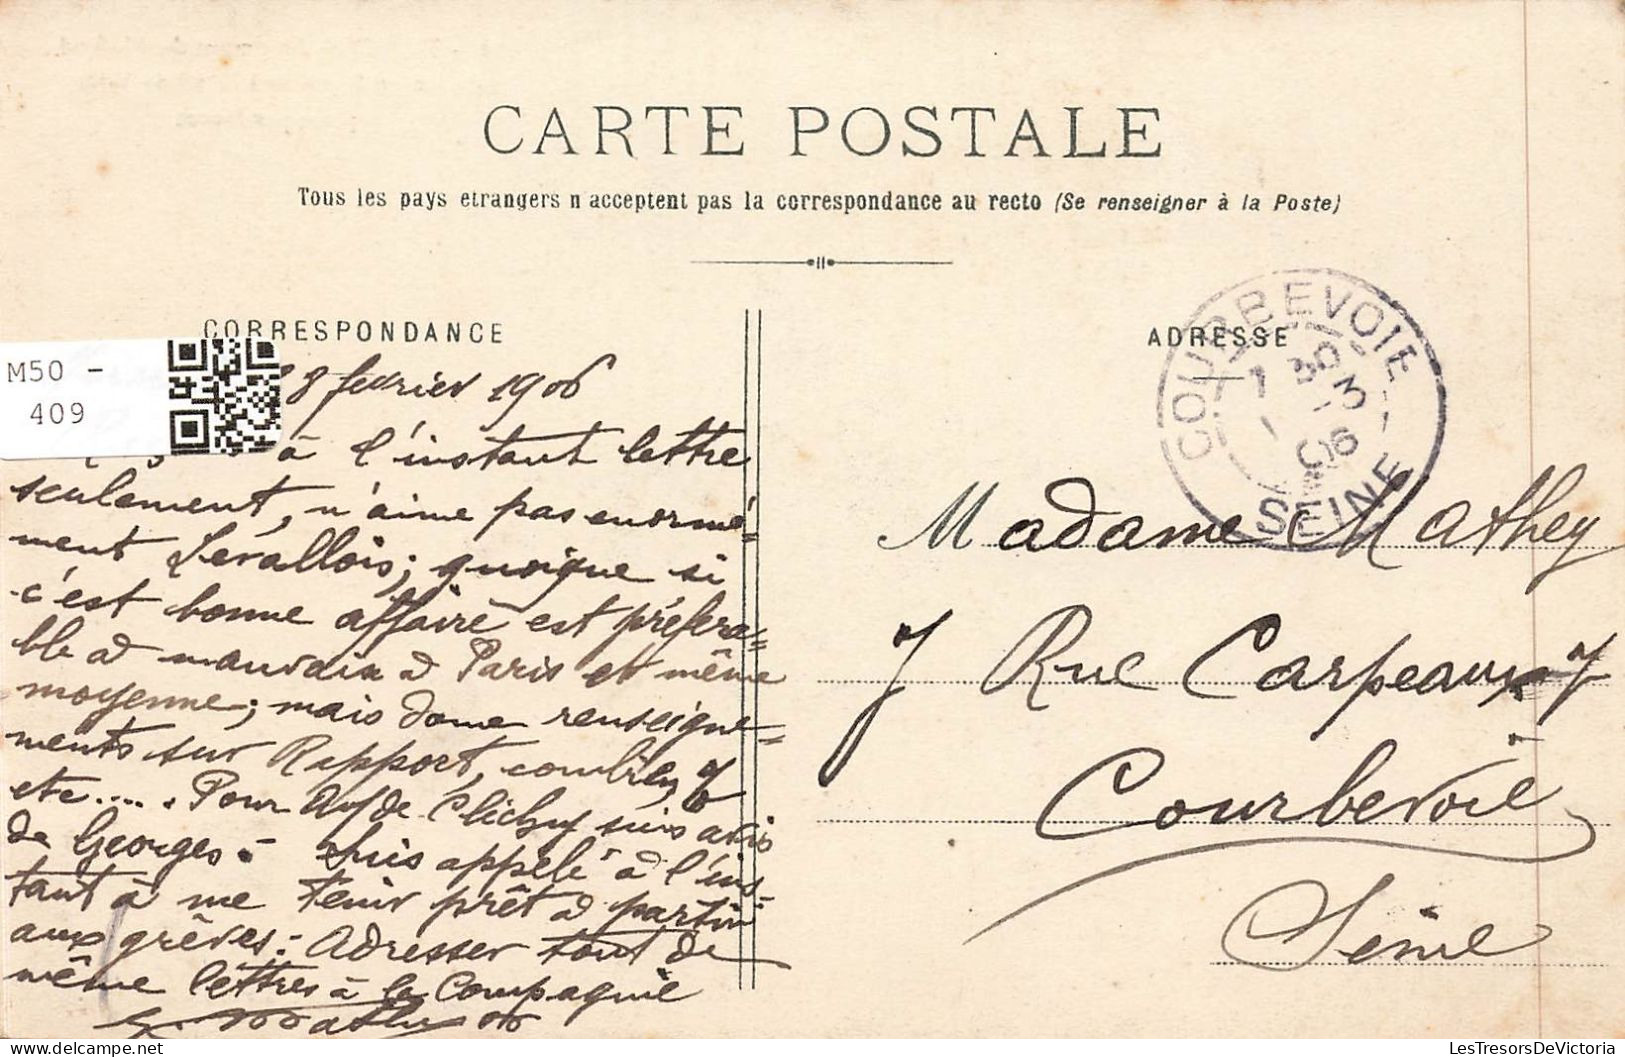 CARTE POSTALE
Tous les pays etrangers n acceptent pas la correspondance au recto (Se renseigner à la Poste)
CORRESPONDANCE
ADRESSE
M50 -
409
COURBEVOIE
7 30
-3
06
SEINE
28 fevrier 1906
à l'instant lettre
seulement, n'aime pas enormé=
ment Levallois; quoique si
c'est bonne affaire est préfera=
ble à mauvaise à Paris et même
moyenne; mais donne renseigne=
ments sur Rapport, combien %
etc..... Pour de Clichy suis avis
de Georges. - Suis appelé à l'ins-
tant à me tenir prêt à partir
aux grèves: Adresser tout de
même lettres à la Compagnie
Mathey
Madame Mathey
7 Rue Carpeaux 7
Courbevoie
Seine
LesTresorsDeVictoria